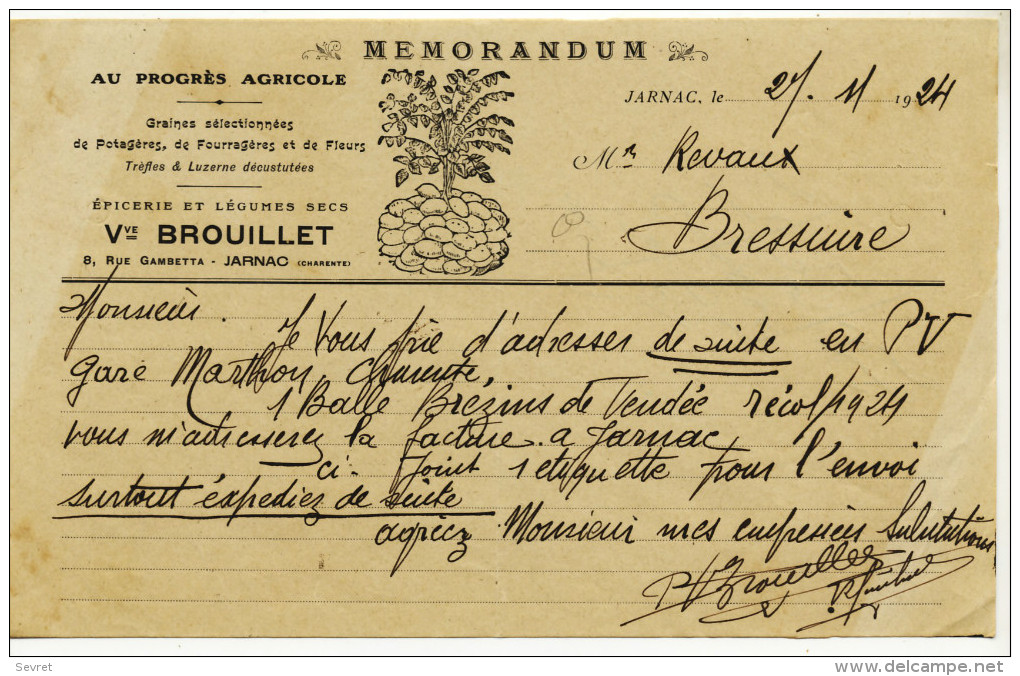 MEMORANDUM
AU PROGRÈS AGRICOLE
Graines sélectionnées
de Potagères, de Fourragères et de Fleurs
Trèfles & Luzerne décustutées
ÉPICERIE ET LÉGUMES SECS
Vve BROUILLET
8, RUE GAMBETTA - JARNAC (CHARENTE)
JARNAC, le 27. 11 1924
Mr Revaux
Bressuire
Monsieur.
Je Vous prie d'adresser de suite en PV
gare Marthon, Charente,
1 Balle Brezins de Vendée récol/1924
vous m'adresserez la facture a Jarnac
ci-joint 1 etiquette pour l'envoi
surtout éxpediez de suite
agréez Monsieur mes empressées Salutations
PV Brouillet
Sevret
delcampe.net